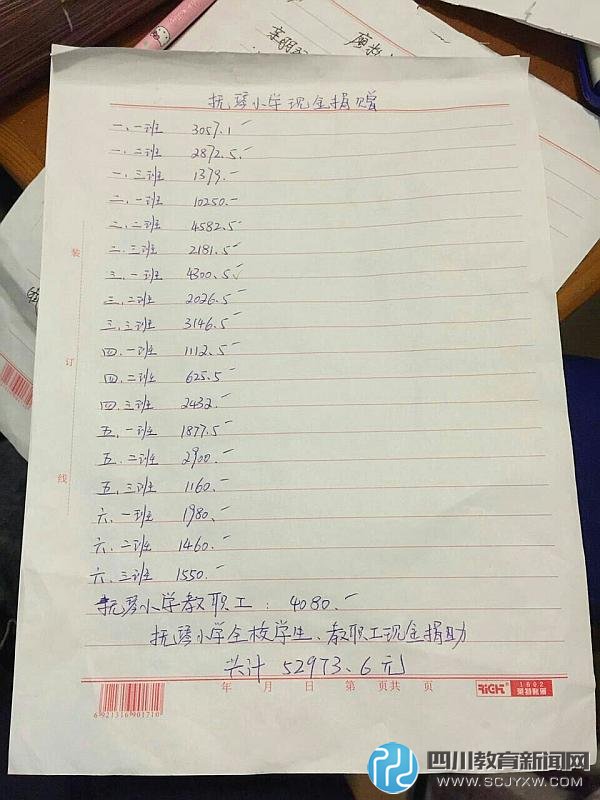 抚琴小学现金捐赠
一、一班 3057.1
一、二班 2872.5
一、三班 1379.-
二、一班 10250.-
二、二班 4582.5
二、三班 2181.5
三、一班 4300.5
三、二班 2026.5
三、三班 3146.5
四、一班 1112.5
四、二班 625.5
四、三班 2432.-
五、一班 1877.5
五、二班 2900.-
五、三班 1160.-
六、一班 1980.-
六、二班 1460.-
六、三班 1550.-
抚琴小学教职工：4080.-
抚琴小学全校学生、教职工现金捐助
共计 52973.6元
装
订
线
年 月 日 第 页共 页
6 921316 901710
RiCH 1602
莱特账簿
四川教育新闻网
WWW.SCJYXW.COM